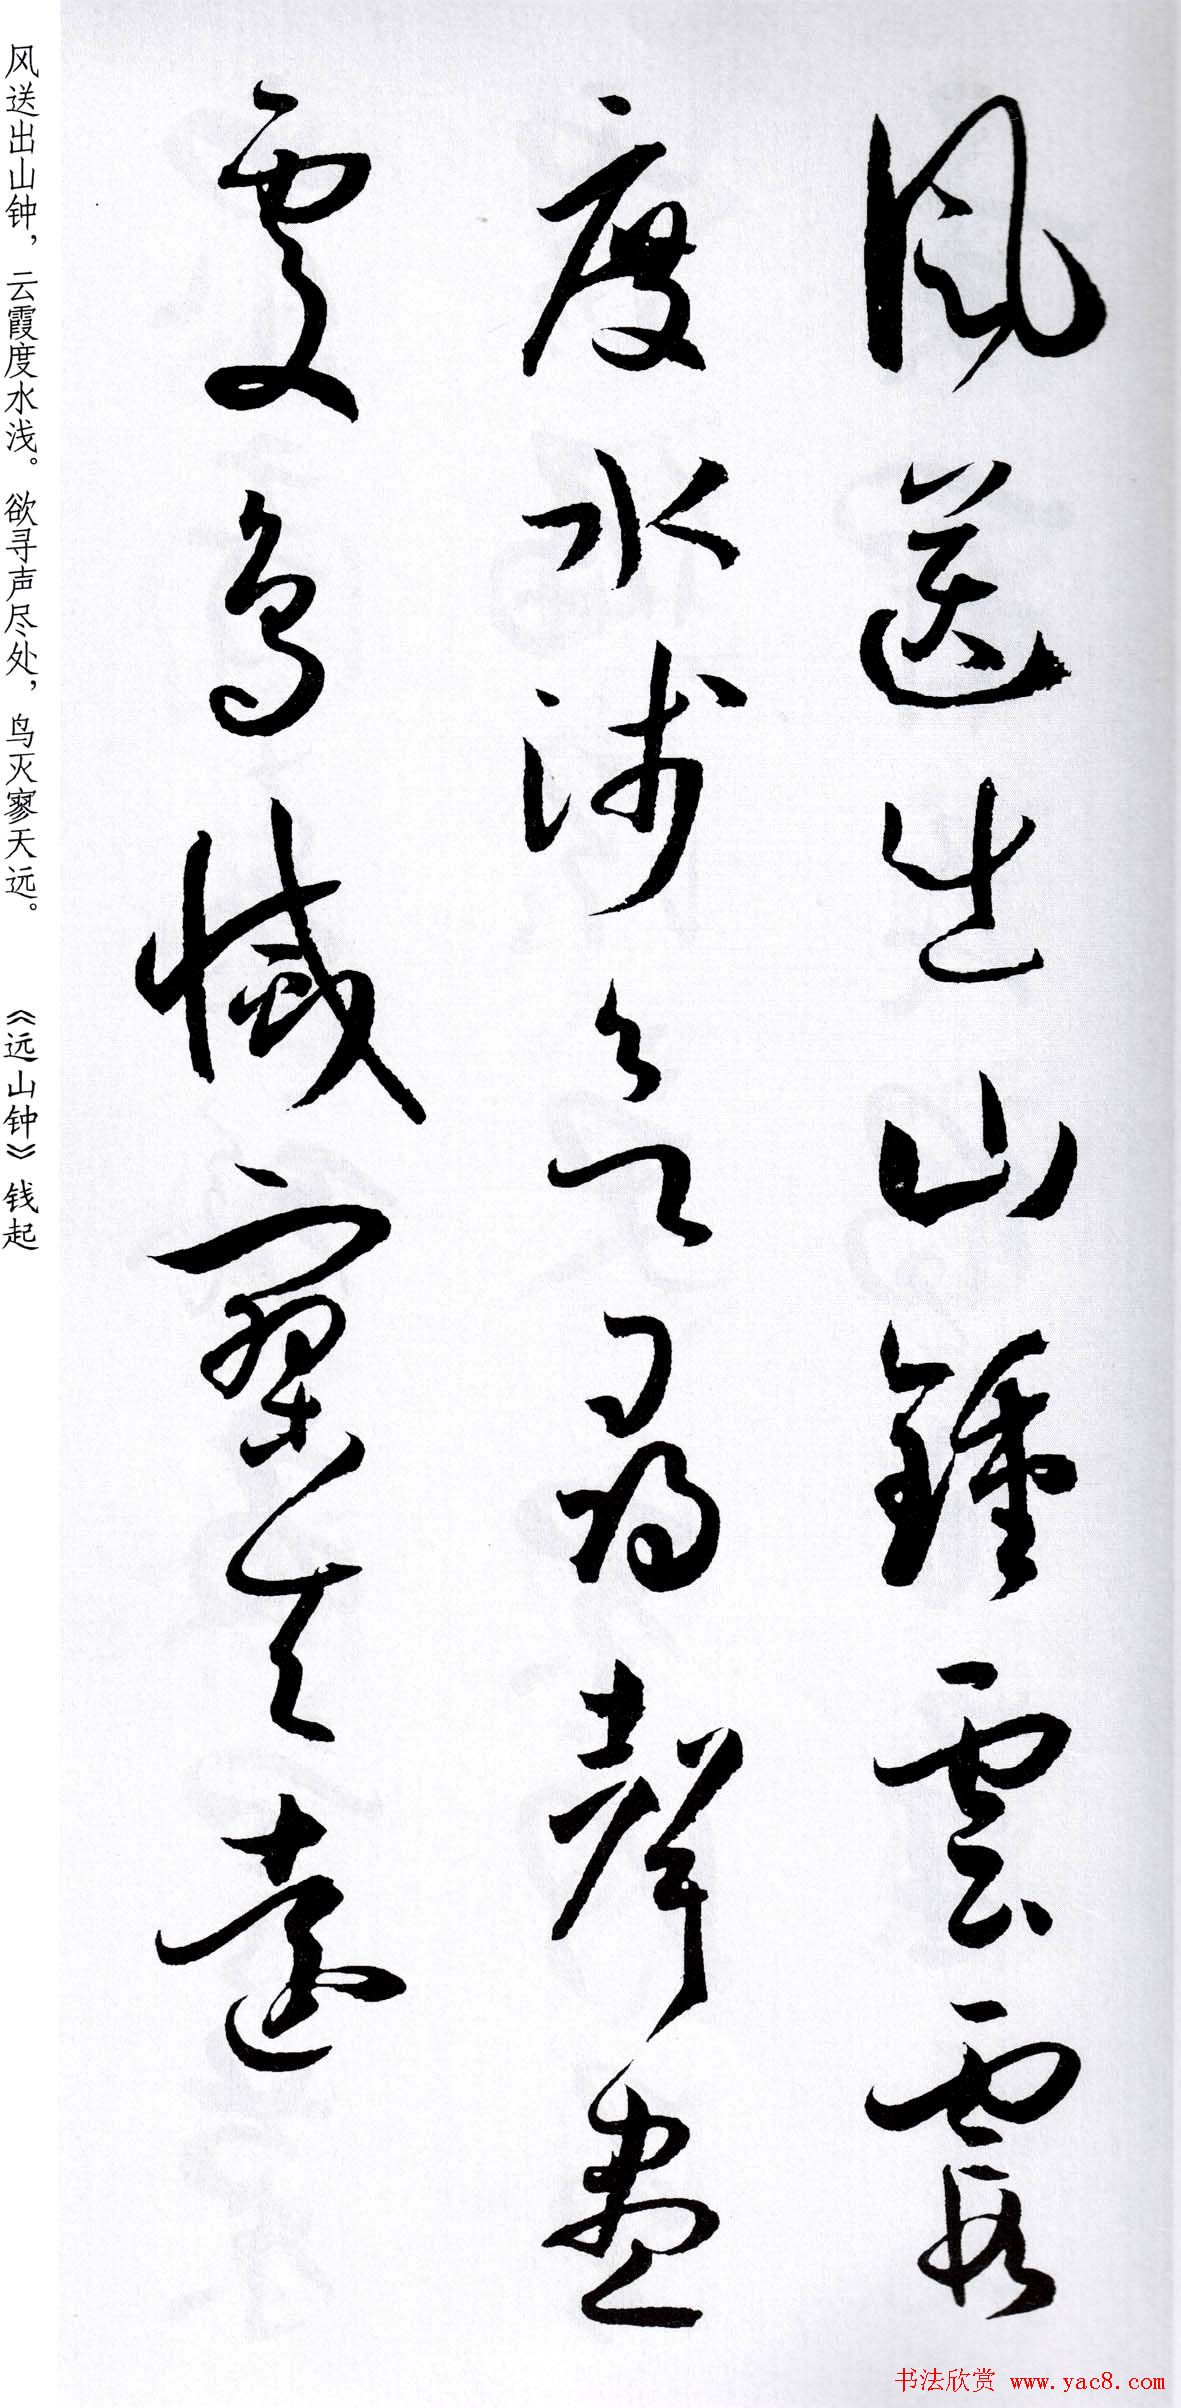 風送出山鍾雲霞
度水淺欲尋聲盡
處鳥滅寥天遠
风送出山钟，云霞度水浅。欲寻声尽处，鸟灭寥天远。 《远山钟》钱起
书法欣赏 www.yac8.com